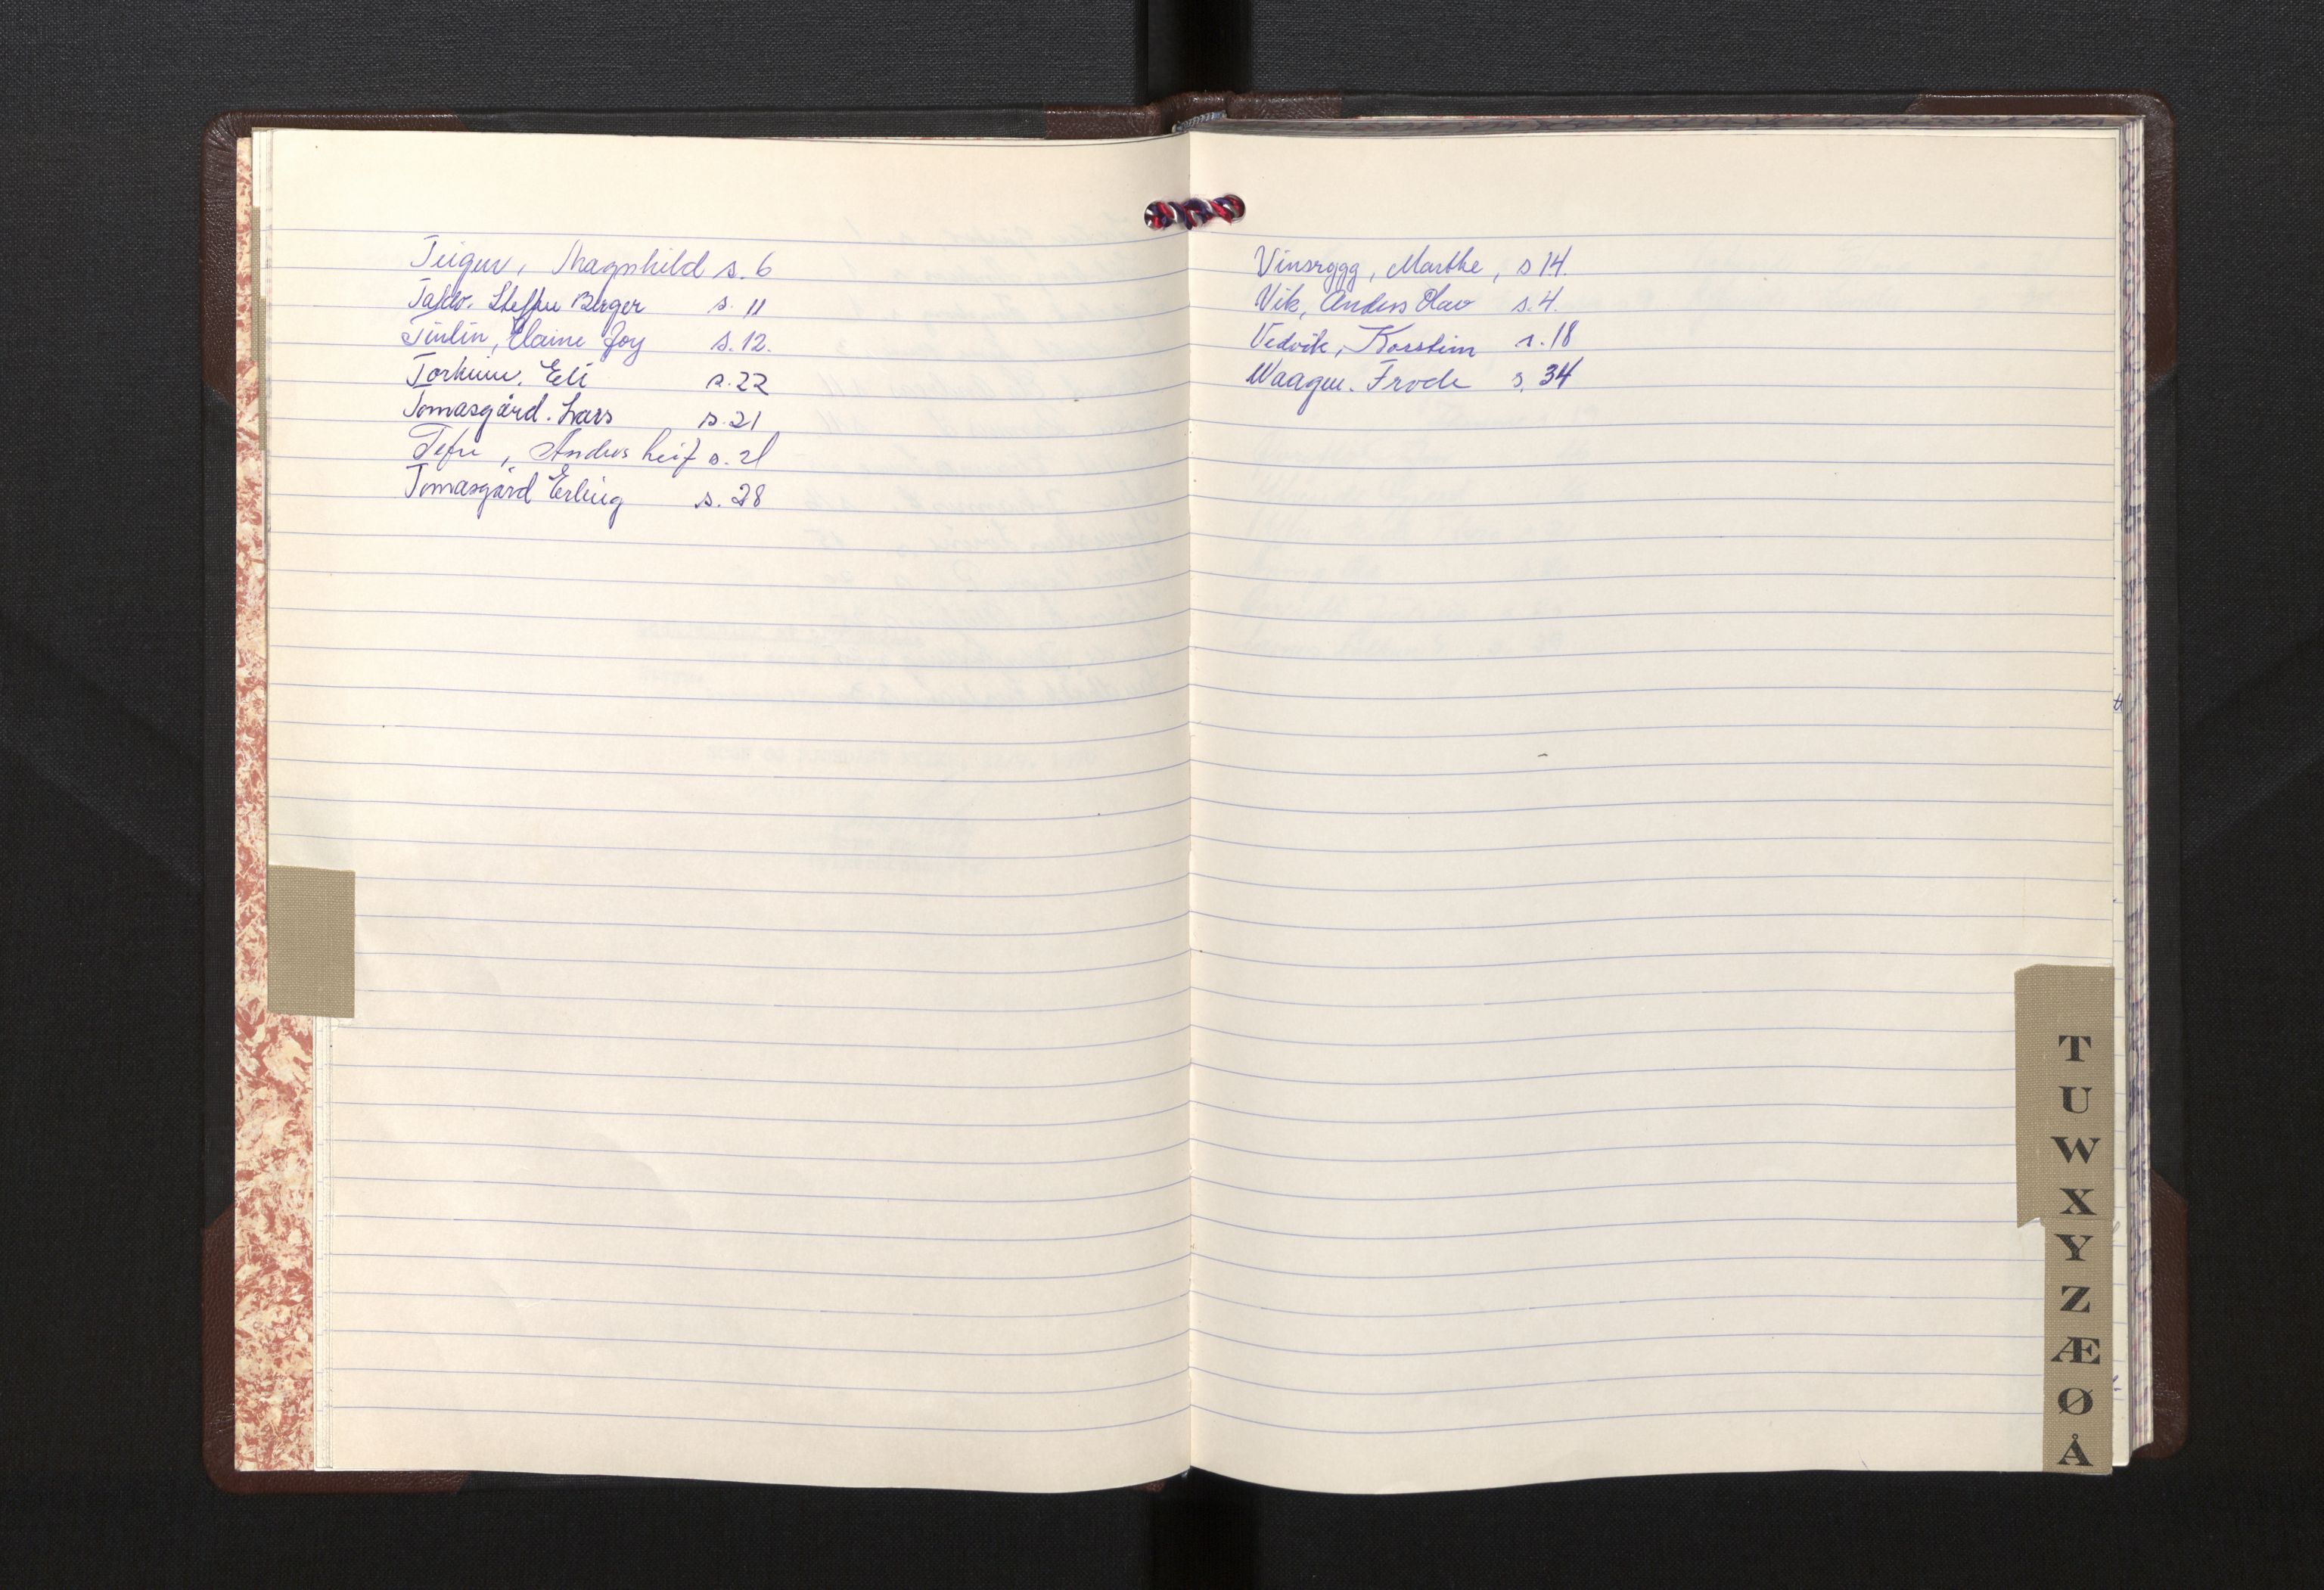 Teigen, Magnhild s. 6
Taldo. Steffen Birger s. 11
Tinlin, Elaine Joy s. 12.
Torheim. Eli s. 22
Tomasgård. Lars s. 21
Tefre, Anders Leif s. 21
Tomasgård Erling s. 28
Vinsrygg, Marthe, s 14.
Vik, Anders Olav s. 4.
Vedvik, Karstein s. 18
Waagen. Frode s. 34
T
U
W
X
Y
Z
Æ
Ø
Å